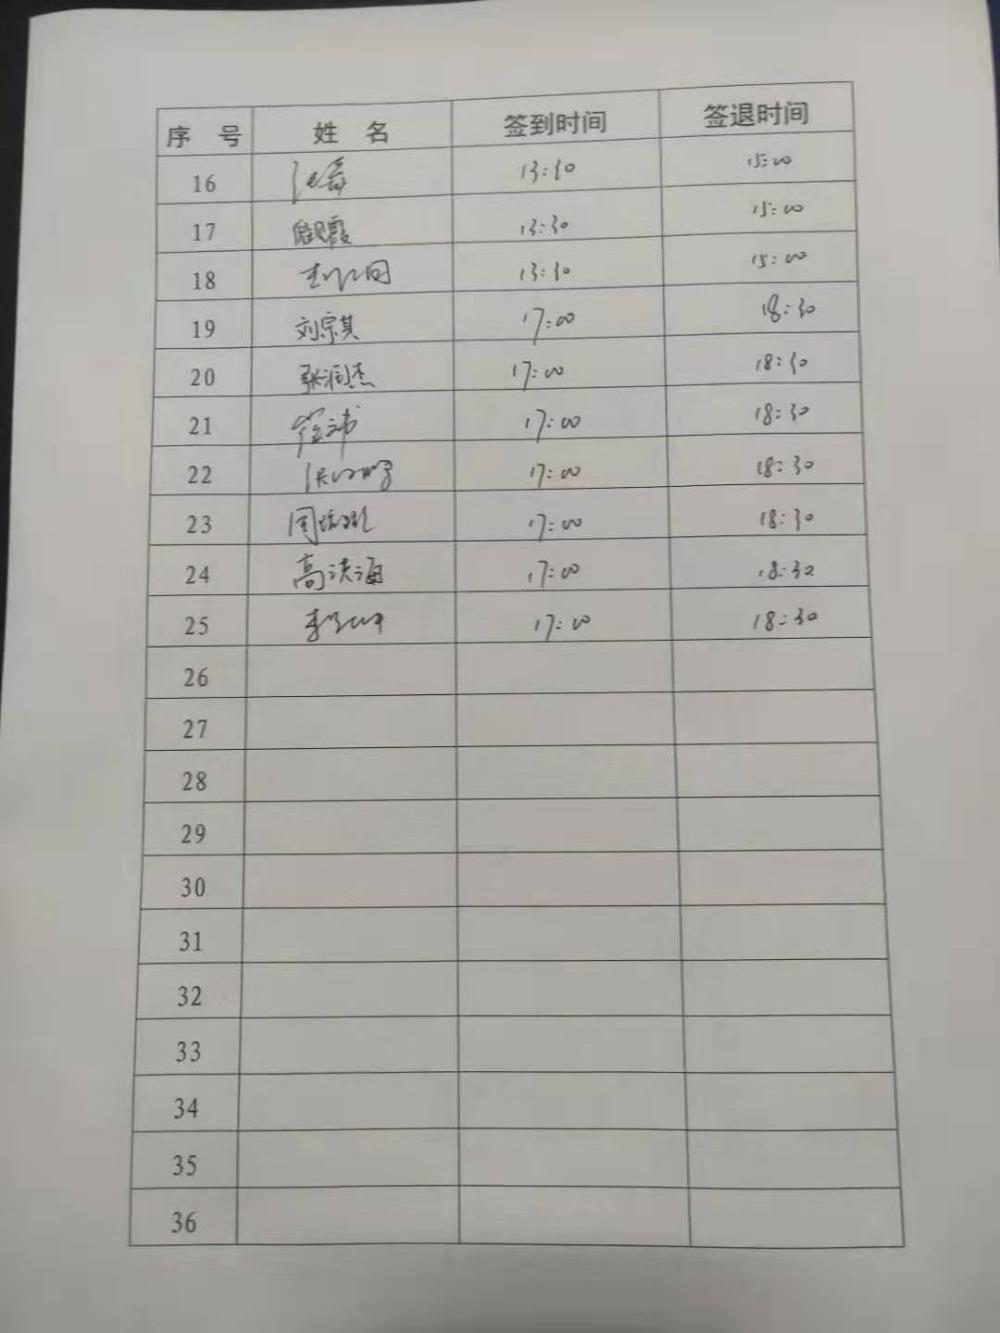 序 号 姓 名 签到时间 签退时间
16 13:30 15:00
17 霞 13:30 15:00
18 13:30 15:00
19 刘宗其 17:00 18:30
20 张润杰 17:00 18:30
21 17:00 18:30
22 17:00 18:30
23 周 17:00 18:30
24 高洪海 17:00 18:30
25 李 17:00 18:30
26
27
28
29
30
31
32
33
34
35
36